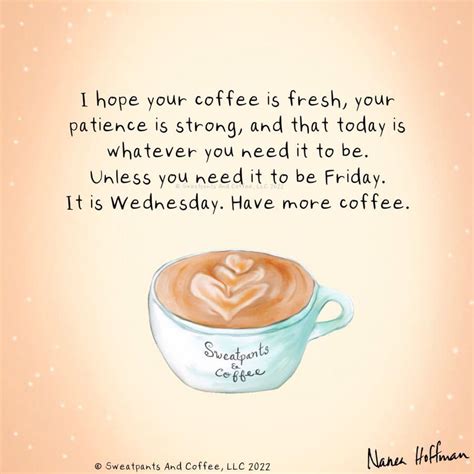 I hope your coffee is fresh, your
patience is strong, and that today is
whatever you need it to be.
Unless you need it to be Friday.
© Sweatpants And Coffee, LLC 2022
It is Wednesday. Have more coffee.
Sweatpants
&
Coffee
© Sweatpants And Coffee, LLC 2022
Nanea Hoffman